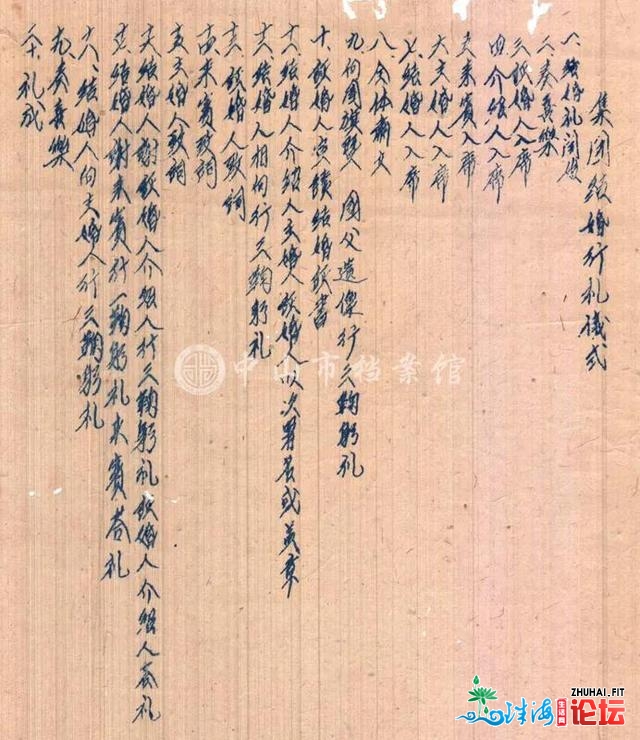 集團结婚行礼儀式
一、结婚礼開始
二、奏喜樂
三、証婚人入席
四、介绍人入席
五、来賓入席
六、主婚人入席
七、结婚人入席
八、全体肅立
九、向國旗暨 國父遺像行三鞠躬礼
十、証婚人宣讀结婚証書
十一、结婚人介绍人主婚人証婚人以次署名或盖章
十二、结婚人相向行三鞠躬礼
十三、証婚人致詞
十四、来賓致詞
十五、主婚人致詞
十六、结婚人謝証婚人介绍人行三鞠躬礼証婚人介绍人答礼
十七、结婚人謝来賓行一鞠躬礼来賓答礼
十八、结婚人向主婚人行三鞠躬礼
十九、奏喜樂
二十、礼成
中山市档案馆
ZHUHAI.FIT
珠海生活网论坛